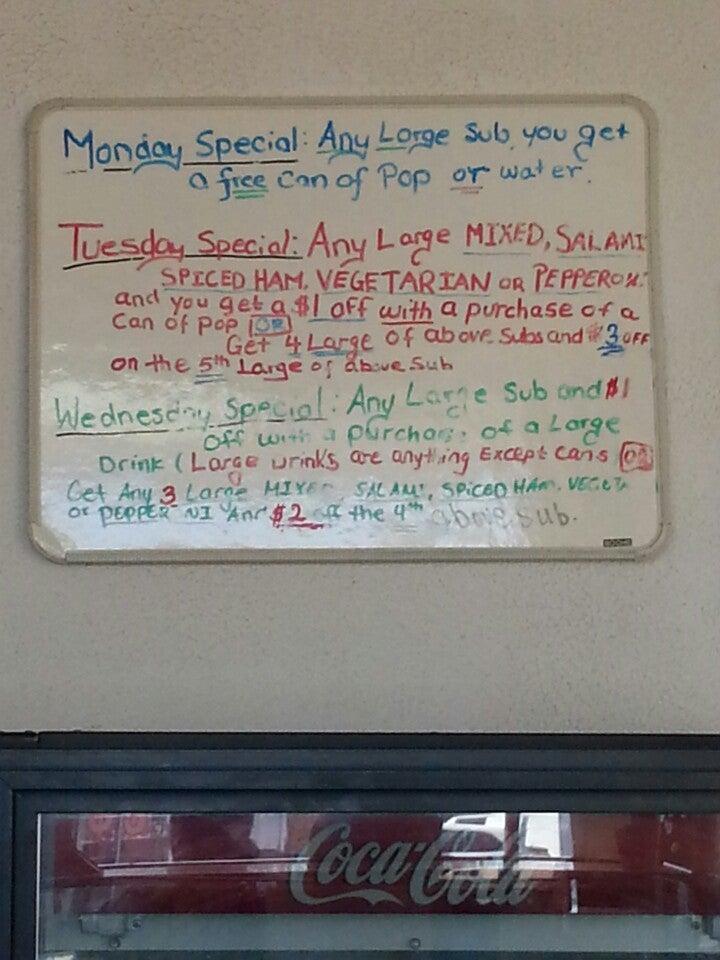 Monday Special: Any Large Sub, you get
a free can of Pop or water.
Tuesday Special: Any Large MIXED, SALAMI
SPICED HAM, VEGETARIAN OR PEPPERONI
and you get a $1 off with a purchase of a
can of pop (OR)
Get 4 Large of above Subs and $3 OFF
on the 5th Large of above Sub
Wednesday Special: Any Large Sub and $1
off with a purchase of a Large
Drink (Large drinks are anything Except cans (OR)
Get Any 3 Large MIXED, SALAMI, SPICED HAM, VEGETA
or PEPPERONI And $2 off the 4th above sub.
Coca-Cola